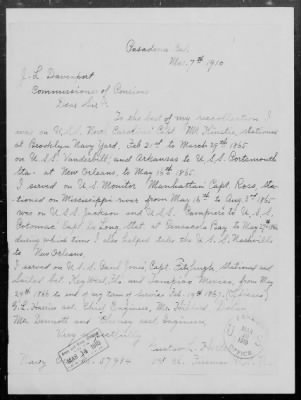 Pasadena Cal.
Mar. 7th 1910
J. L. Davenport
Commissioner of Pensions
Dear Sir:
To the best of my recollection I
was on U.S.S. North Carolina Capt. stationed
at Brooklyn Navy Yard, Feb 21st to March 29th 1865
on U.S.S. Vanderbilt, and Arkansas to U.S.S. Portsmouth
sta- at New Orleans to May 16th 1865.
I served on U.S. Monitor Manhattan Capt. Rose sta-
tioned on Mississippi river from May 16th to Aug 3rd 1865
was on U.S.S. Jackson and U.S.S. to U.S.S.
Potomac Capt stat. at Pensacola Bay to May 29th 1866
during which time I also helped take the U.S.S. Nashville
to New Orleans.
I served on U.S.S. Paul Jones Capt. Fitzhugh stationed and
Key West, Fla and Tampico Mexico, from May
29th 1866 to end of my term of service Feb. 19th 1867.
G. L. Harris act. Chief Engineer, Mr
Mr Bennett and act. Engineers,
Very respectfully
Gustav L.
Navy 57984 1st cl. Fireman
MAR 14 1910
OFFICE